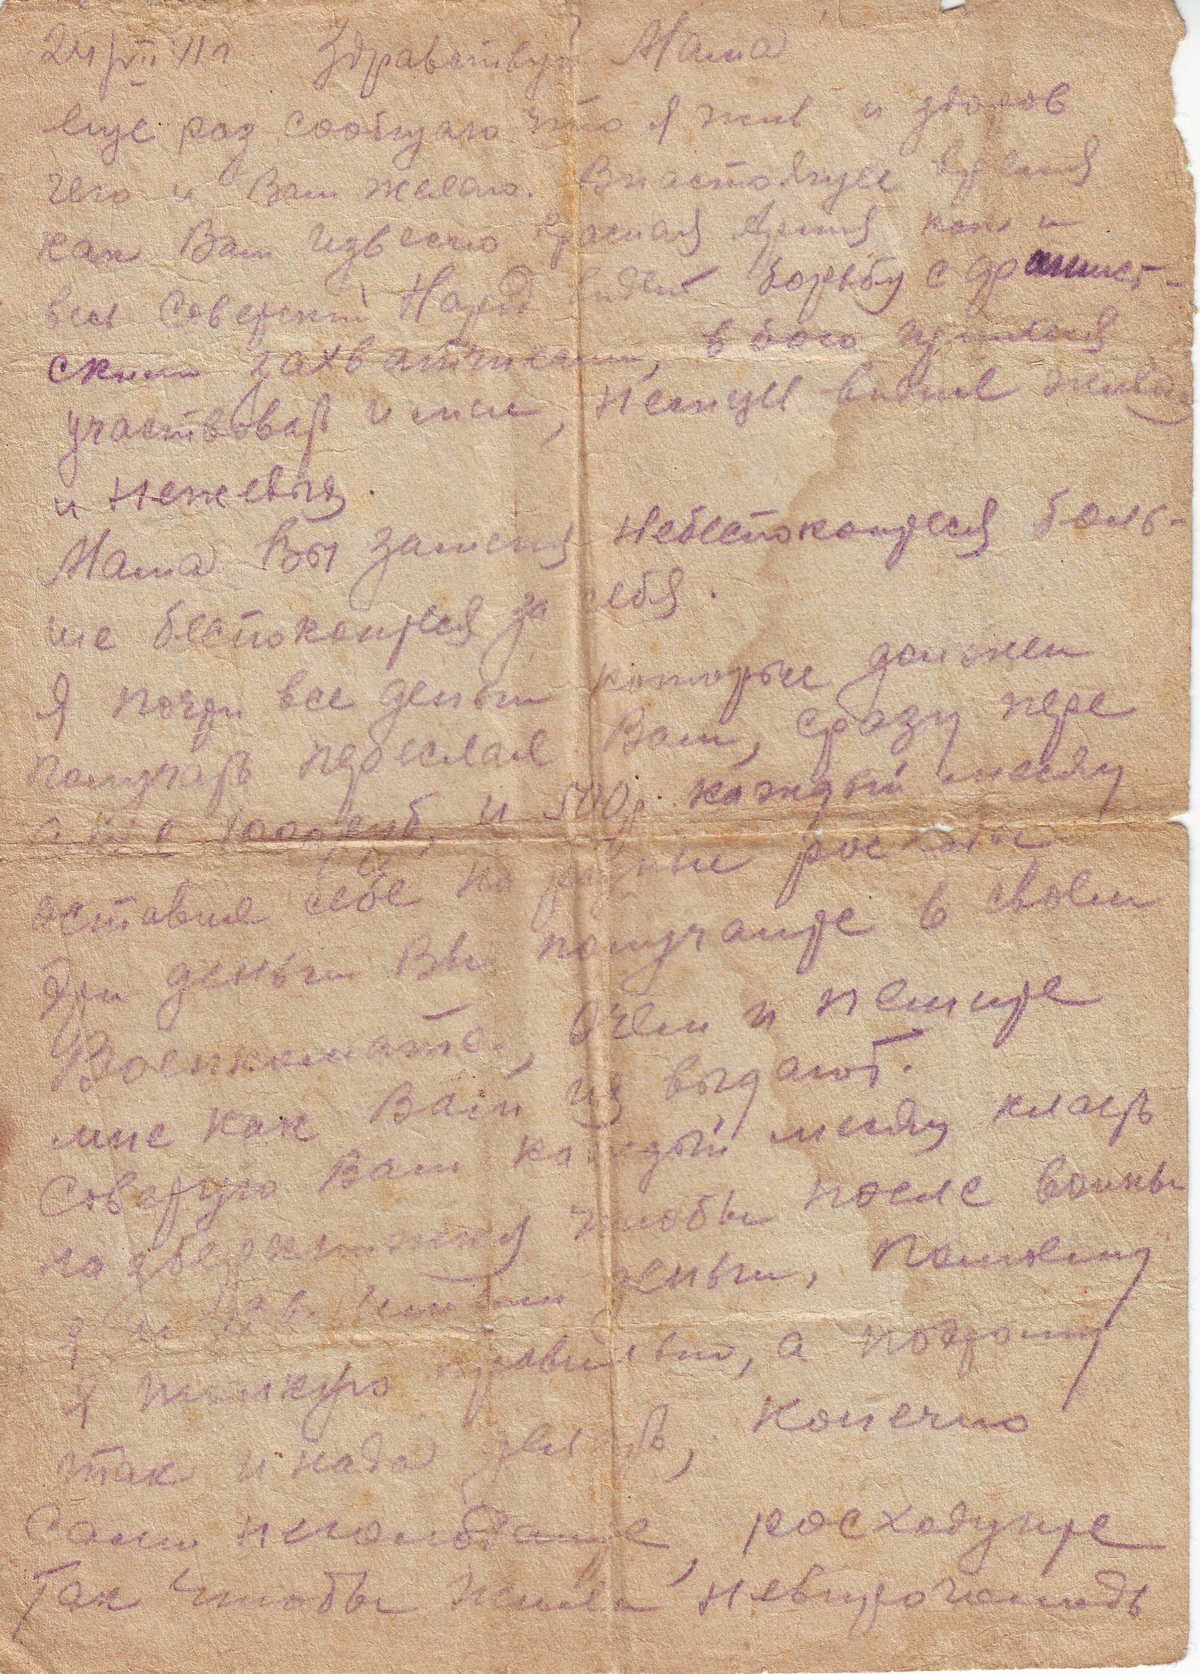 24/VII 41 г. Здравствуй Мама
еще раз сообщаю что я жив и здоров
чего и Вам желаю. Внастоящее время
как Вам извесно Красная Армия как и
весь Советский Народ ведет борьбу с фашист-
скими захватчиками, в бою
участвовать и мне, немцев видел живых
и неживых.
Мама Вы заменя небеспокойтеся боль-
ше беспокойтеся за себя.
Я почти все деньги которые должен
получать переслал Вам, сразу пере
руб. и 500 р. каждый месяц
оставил себе на разные росходы
Эти деньги Вы получайте в своем
Военкомате, очем и пешите
мне как Вам их выдают.
Советую Вам каждый месяц класть
на збережкнижкя чтобы после войны
я деньги, помоему
я толкую правильно, а поэтому
так и нада делать, конечно
Сами неголодайте, росходуйте
Так чтобы жили невпроголодь